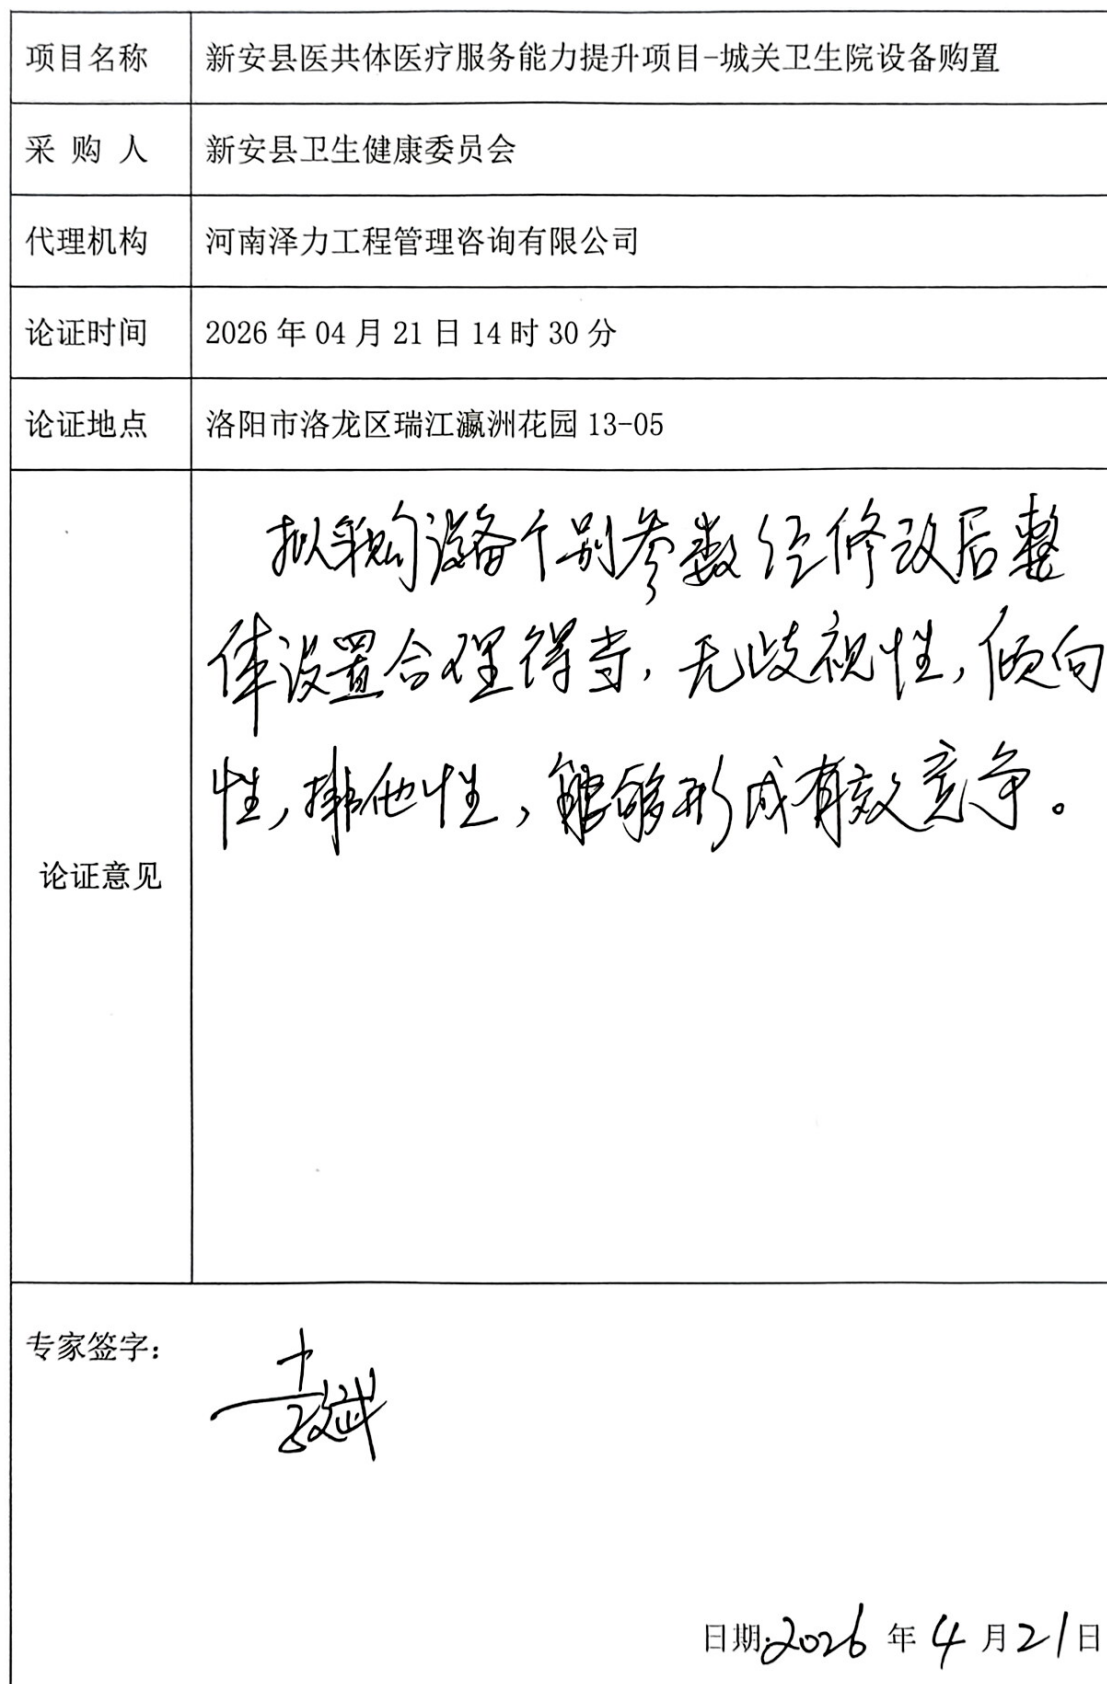 项目名称 新安县医共体医疗服务能力提升项目-城关卫生院设备购置
采购人 新安县卫生健康委员会
代理机构 河南泽力工程管理咨询有限公司
论证时间 2026年04月21日14时30分
论证地点 洛阳市洛龙区瑞江瀛洲花园13-05
拟采购设备个别参数经修改后整
体设置合理得当,无歧视性,倾向
性,排他性,能够形成有效竞争。
论证意见
专家签字:
日期:2026年4月21日